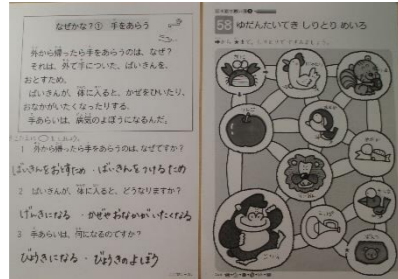 なぜかな?① 手をあらう
外から帰ったら手をあらうのは、なぜ?
それは、外で手についた、ばいきんを、
おとすため。
ばいきんが、体に入ると、かぜをひいたり、
おなかがいたくなったりする。
手あらいは、病気のよぼうになるんだ。
1 外から帰ったら手をあらうのは、なぜですか?
ばいきんをおとすため ・ ばいきんをつけるため
2 ばいきんが、体に入ると、どうなりますか?
げんきになる ・ かぜやおなかがいたくなる
3 手あらいは、何になるのですか?
びょうきになる ・ びょうきのよぼう
58 ゆだんたいてき しりとり めいろ
りんご
ゴリラ